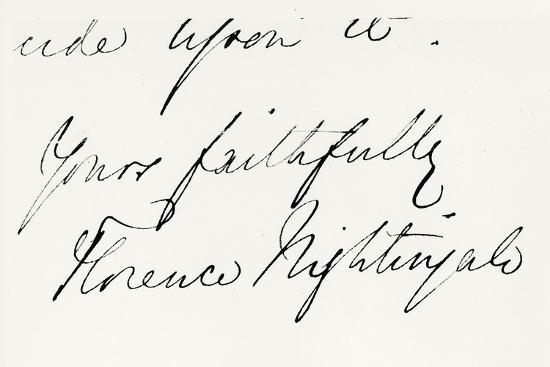 upon it.
Yours faithfully
Florence Nightingale